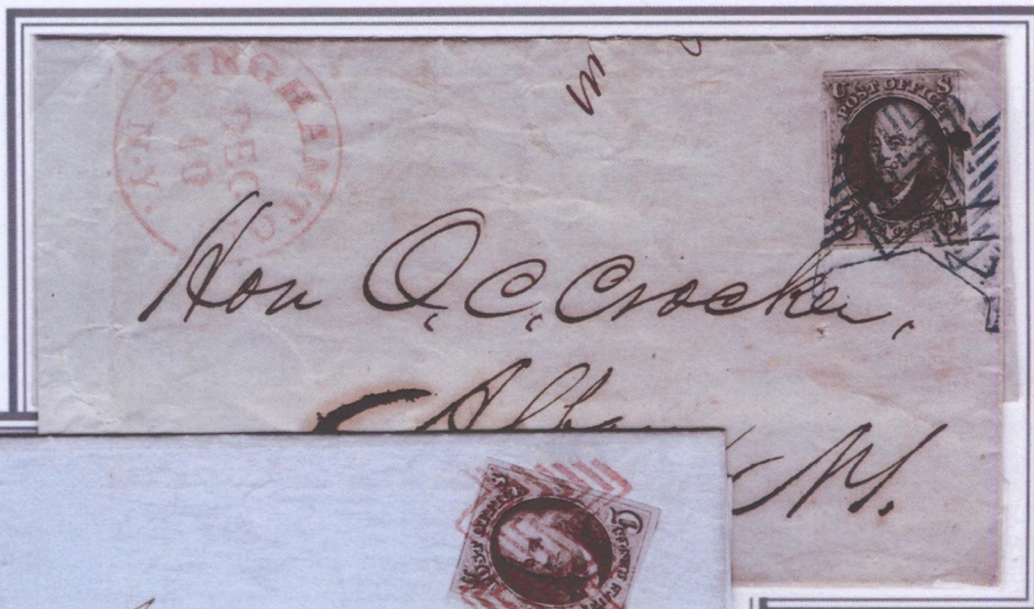 BINGHAMTO
N.Y.
DEC
10
U S
POST OFFICE
Hon O. C. Crocker,
N.Y.
POST OFFICE